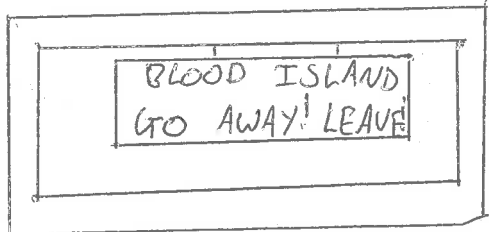 BLOOD ISLAND
GO AWAY! LEAVE!